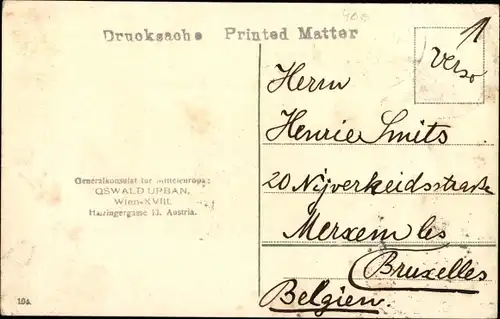 40.-
Drucksache Printed Matter
Verso
Herrn
Henrie Smits
20 Nijverheidsstrasse
Merxem les
Bruxelles
Belgien.
Generalkonsulat für Mitteleuropa:
OSWALD URBAN,
Wien-XVIII.
Haizingergasse 13. Austria.
104